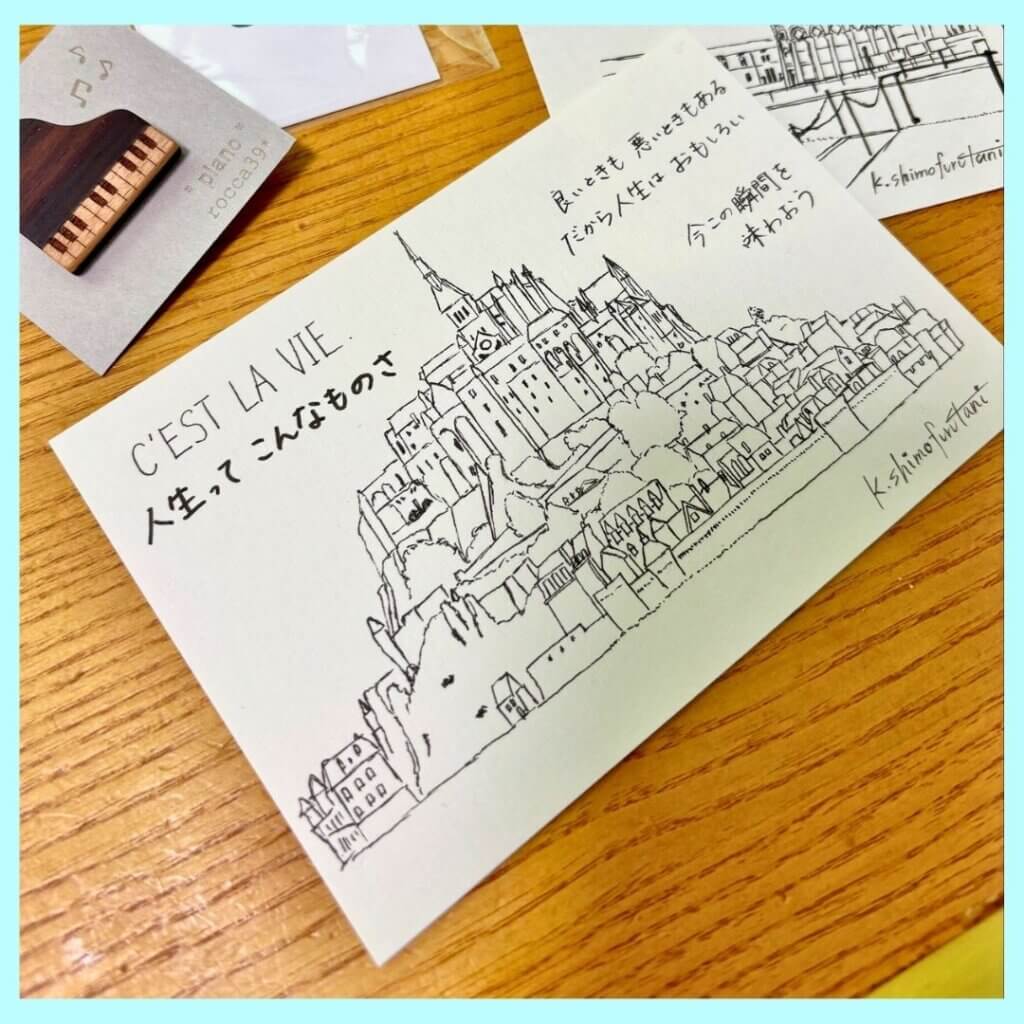 C'EST LA VIE.
人生って こんなものさ
良いときも 悪いときもある
だから人生は おもしろい
今この瞬間を
味わおう
k.shimofurutani
k.shimofurutani
"piano"
rocca39*